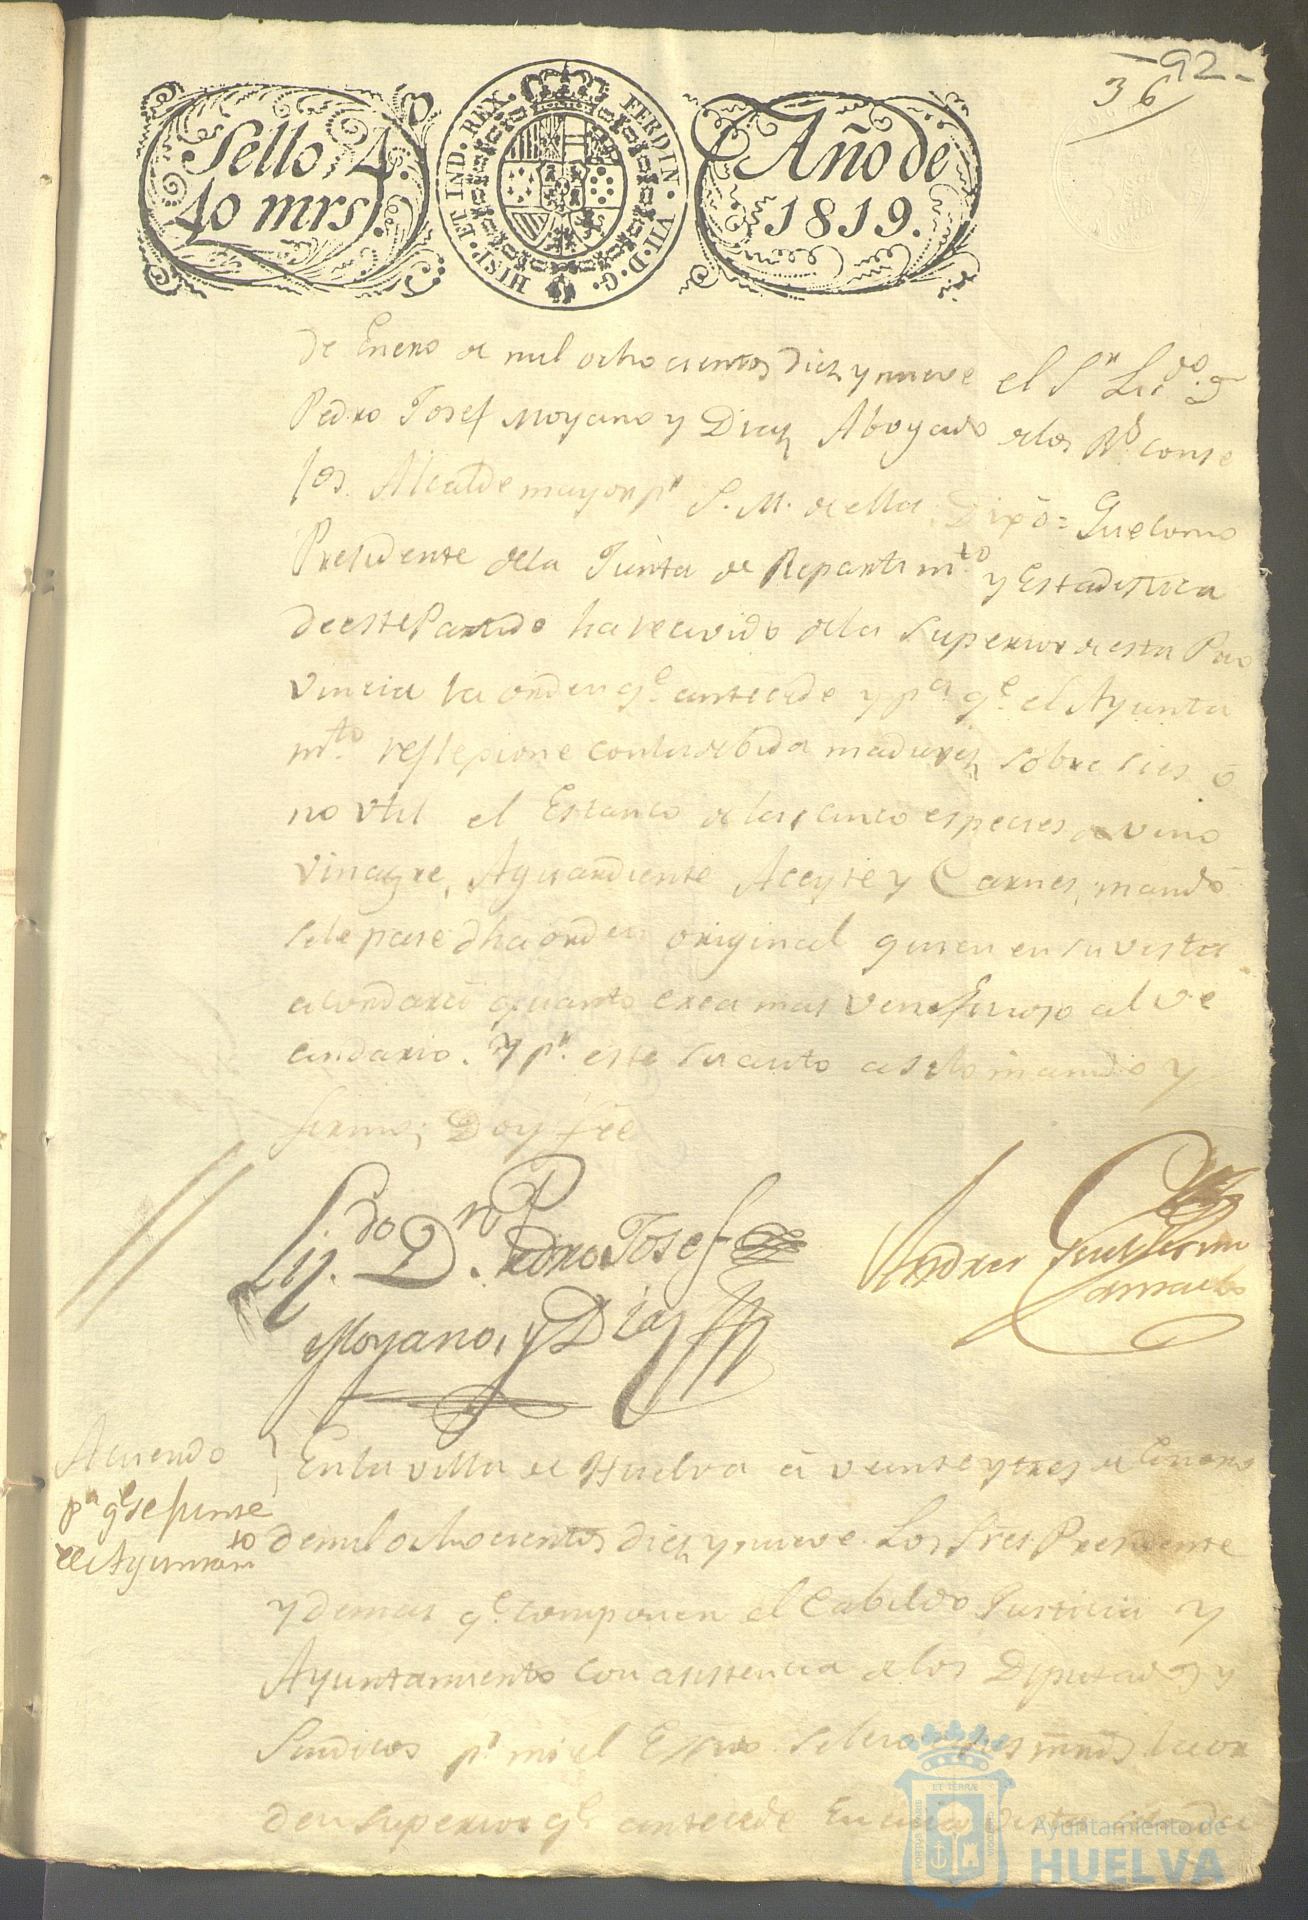 -92-
36
Sello, 4.
40 mrs.
HISP. ET IND. REX. FERDIN. VII. D. G.
Año de
1819.
de Enero de mil ochocientos diez y nueve el Sr Licdo. D
Pedro Josef Moyano y Diaz Abogado de los Rs. conse
jos. Alcalde mayor pr S. M. de ella: Dixo= Que como
Presidente de la Junta de Repartimto. y Estadistica
de este Partido ha recivido de la Superior de esta Pro
vincia la orden qe. antecede y pa. qe. el Ayunta
mto. reflepione con la debida madurez sobre si es ó
no vtil el Estanco de las cinco especies de vino
vinagre, Aguardiente Aceyte y Carnes, mandó
se le pase dha orden original quien en su vista
acordará quanto crea mas veneficioso al ve
cindario. Y pr. este su auto asi lo mandó y
firmo; Doy fee
Lizdo. Dn. Pedro Josef
Moyano, y Diaz
Andres Guillermo
Acuerdo
pa qe se junte
el Ayuntamto
En la villa de Huelva á veinte y tres de Enero
de mil ochocientos diez y nueve. Los Sres Presidente
y demas qe. componen el Cabildo Justicia y
Ayuntamiento con asistencia de los Diputados y
Sindicos pr. mi el Essno. se leio la or
den superior qe antecede En cuia vista
Ayuntamiento de
HUELVA